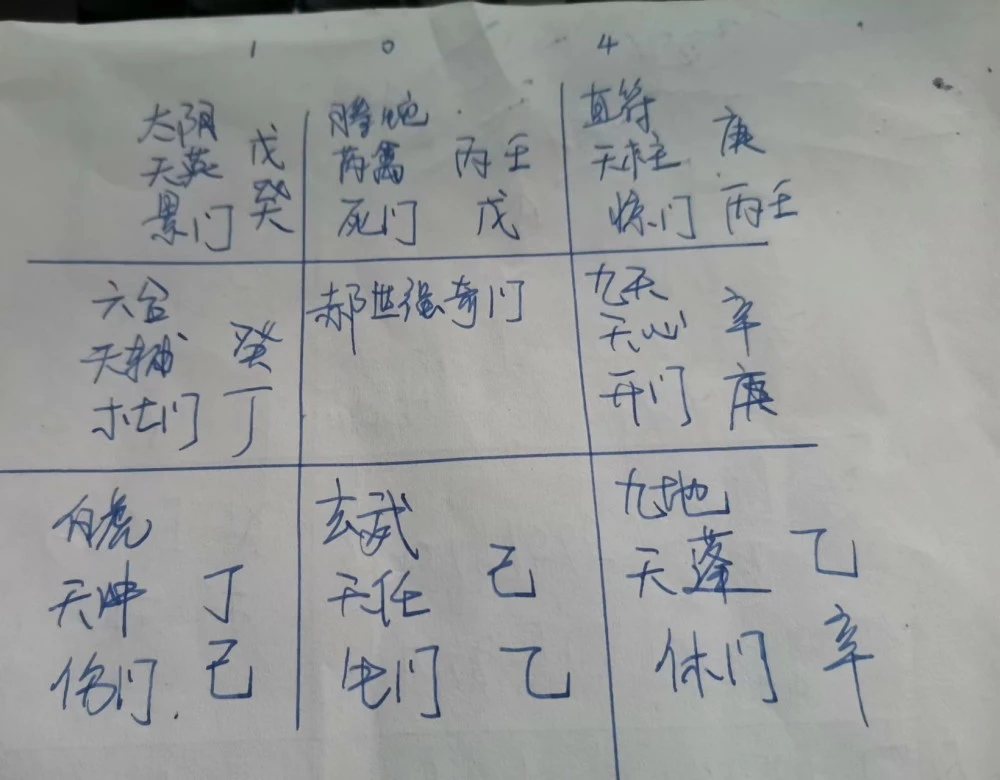 1 0 4
太阴 戊
天英
景门 癸
腾蛇
芮禽 丙壬
死门 戊
直符 庚
天柱
惊门 丙壬
六合
天辅 癸
杜门 丁
郝世强奇门
九天
天心 辛
开门 庚
白虎
天冲 丁
伤门 己
玄武
天任 己
生门 乙
九地
天蓬 乙
休门 辛